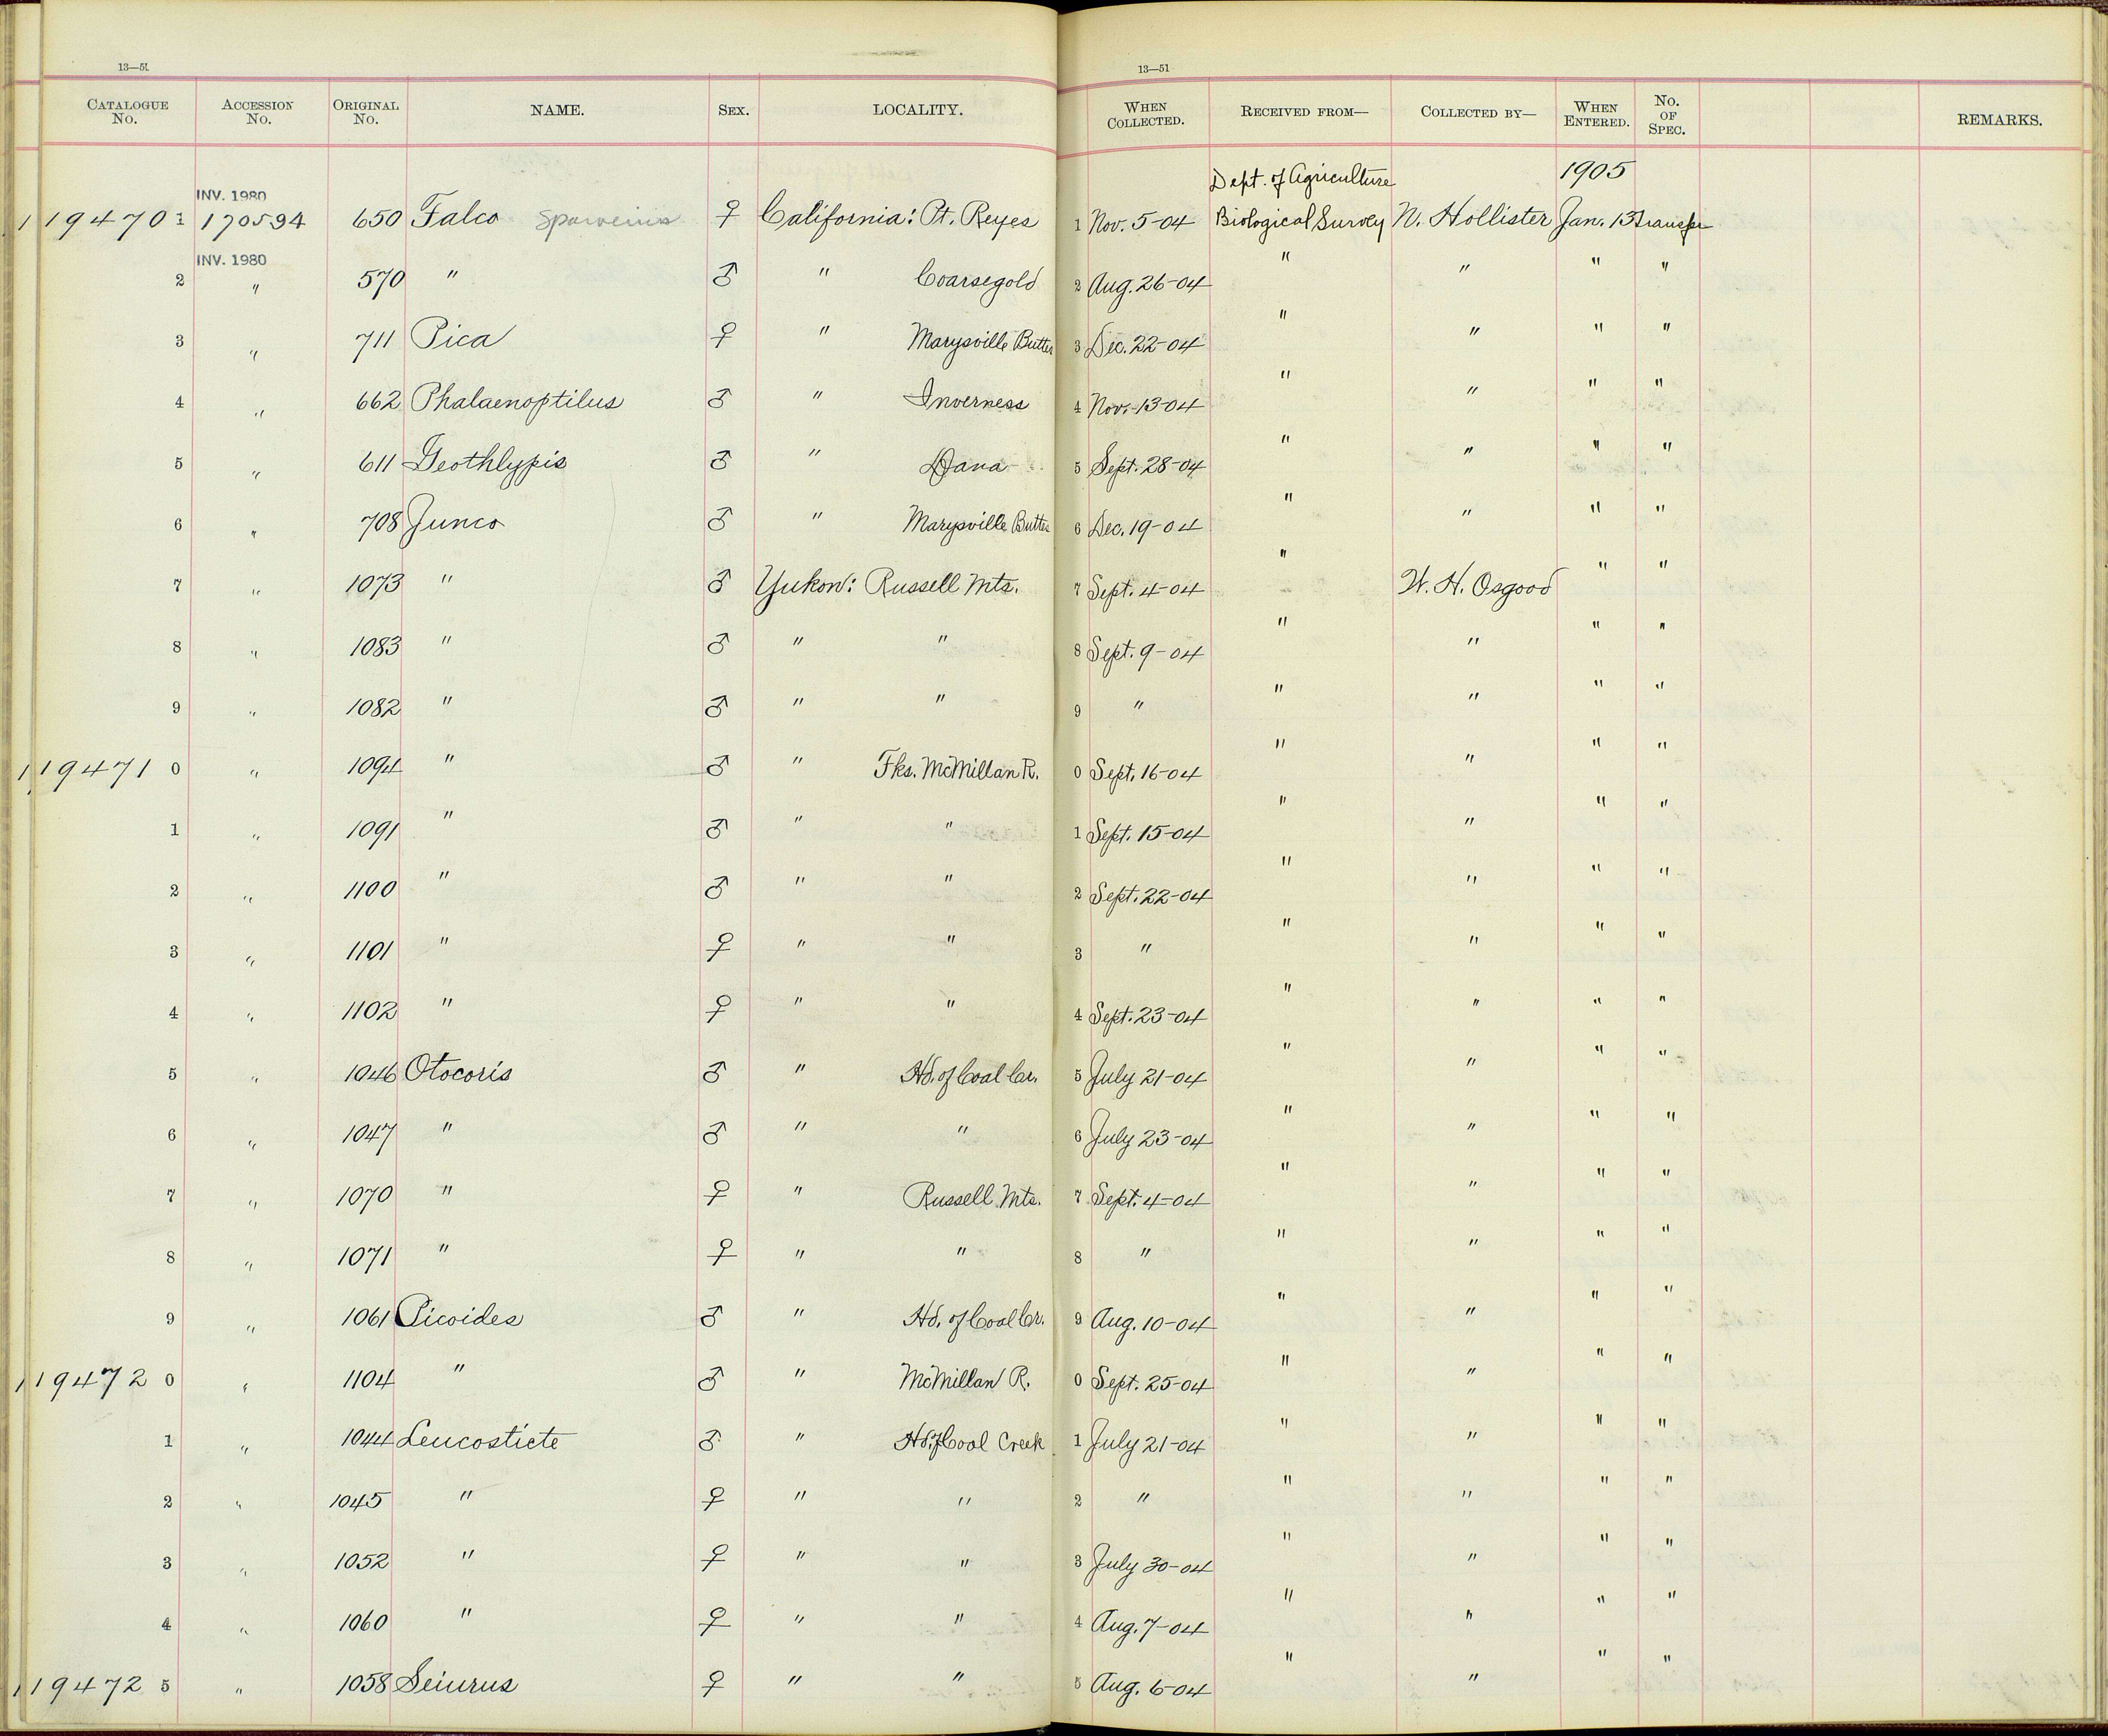 13—51 13—51
CATALOGUE No. ACCESSION No. ORIGINAL No. NAME. SEX. LOCALITY. WHEN COLLECTED. RECEIVED FROM— COLLECTED BY— WHEN ENTERED. No. OF SPEC. REMARKS.
Dept. of Agriculture 1905
INV. 1980
119470 1 170594 650 Falco Sparverius ♀ California: Pt. Reyes 1 Nov. 5-04 Biological Survey N. Hollister Jan. 13 transfer
INV. 1980
2 " 570 " ♂ " Coarsegold 2 Aug. 26-04 " " " "
3 " 711 Pica ♀ " Marysville Buttes 3 Dec. 22-04 " " " "
4 " 662 Phalaenoptilus ♂ " Inverness 4 Nov. 13-04 " " " "
5 " 611 Geothlypis ♂ " Dana 5 Sept. 28-04 " " " "
6 " 708 Junco ♂ " Marysville Buttes 6 Dec. 19-04 " " " "
7 " 1073 " ♂ Yukon: Russell Mts. 7 Sept. 4-04 " W. H. Osgood " "
8 " 1083 " ♂ " " 8 Sept. 9-04 " " " "
9 " 1082 " ♂ " " 9 " " " " "
119471 0 " 1094 " ♂ " Fks. McMillan R. 0 Sept. 16-04 " " " "
1 " 1091 " ♂ " " 1 Sept. 15-04 " " " "
2 " 1100 " ♂ " " 2 Sept. 22-04 " " " "
3 " 1101 " ♀ " " 3 " " " " "
4 " 1102 " ♀ " " 4 Sept. 23-04 " " " "
5 " 1046 Otocoris ♂ " Hd. of Coal Cr. 5 July 21-04 " " " "
6 " 1047 " ♂ " " 6 July 23-04 " " " "
7 " 1070 " ♀ " Russell Mts. 7 Sept. 4-04 " " " "
8 " 1071 " ♀ " " 8 " " " " "
9 " 1061 Picoides ♂ " Hd. of Coal Cr. 9 Aug. 10-04 " " " "
119472 0 " 1104 " ♂ " McMillan R. 0 Sept. 25-04 " " " "
1 " 1044 Leucosticte ♂ " Hd. of Coal Creek 1 July 21-04 " " " "
2 " 1045 " ♀ " " 2 " " " " "
3 " 1052 " ♀ " " 3 July 30-04 " " " "
4 " 1060 " ♀ " " 4 Aug. 7-04 " " " "
119472 5 " 1058 Seiurus ♀ " " 5 Aug. 6-04 " " " "